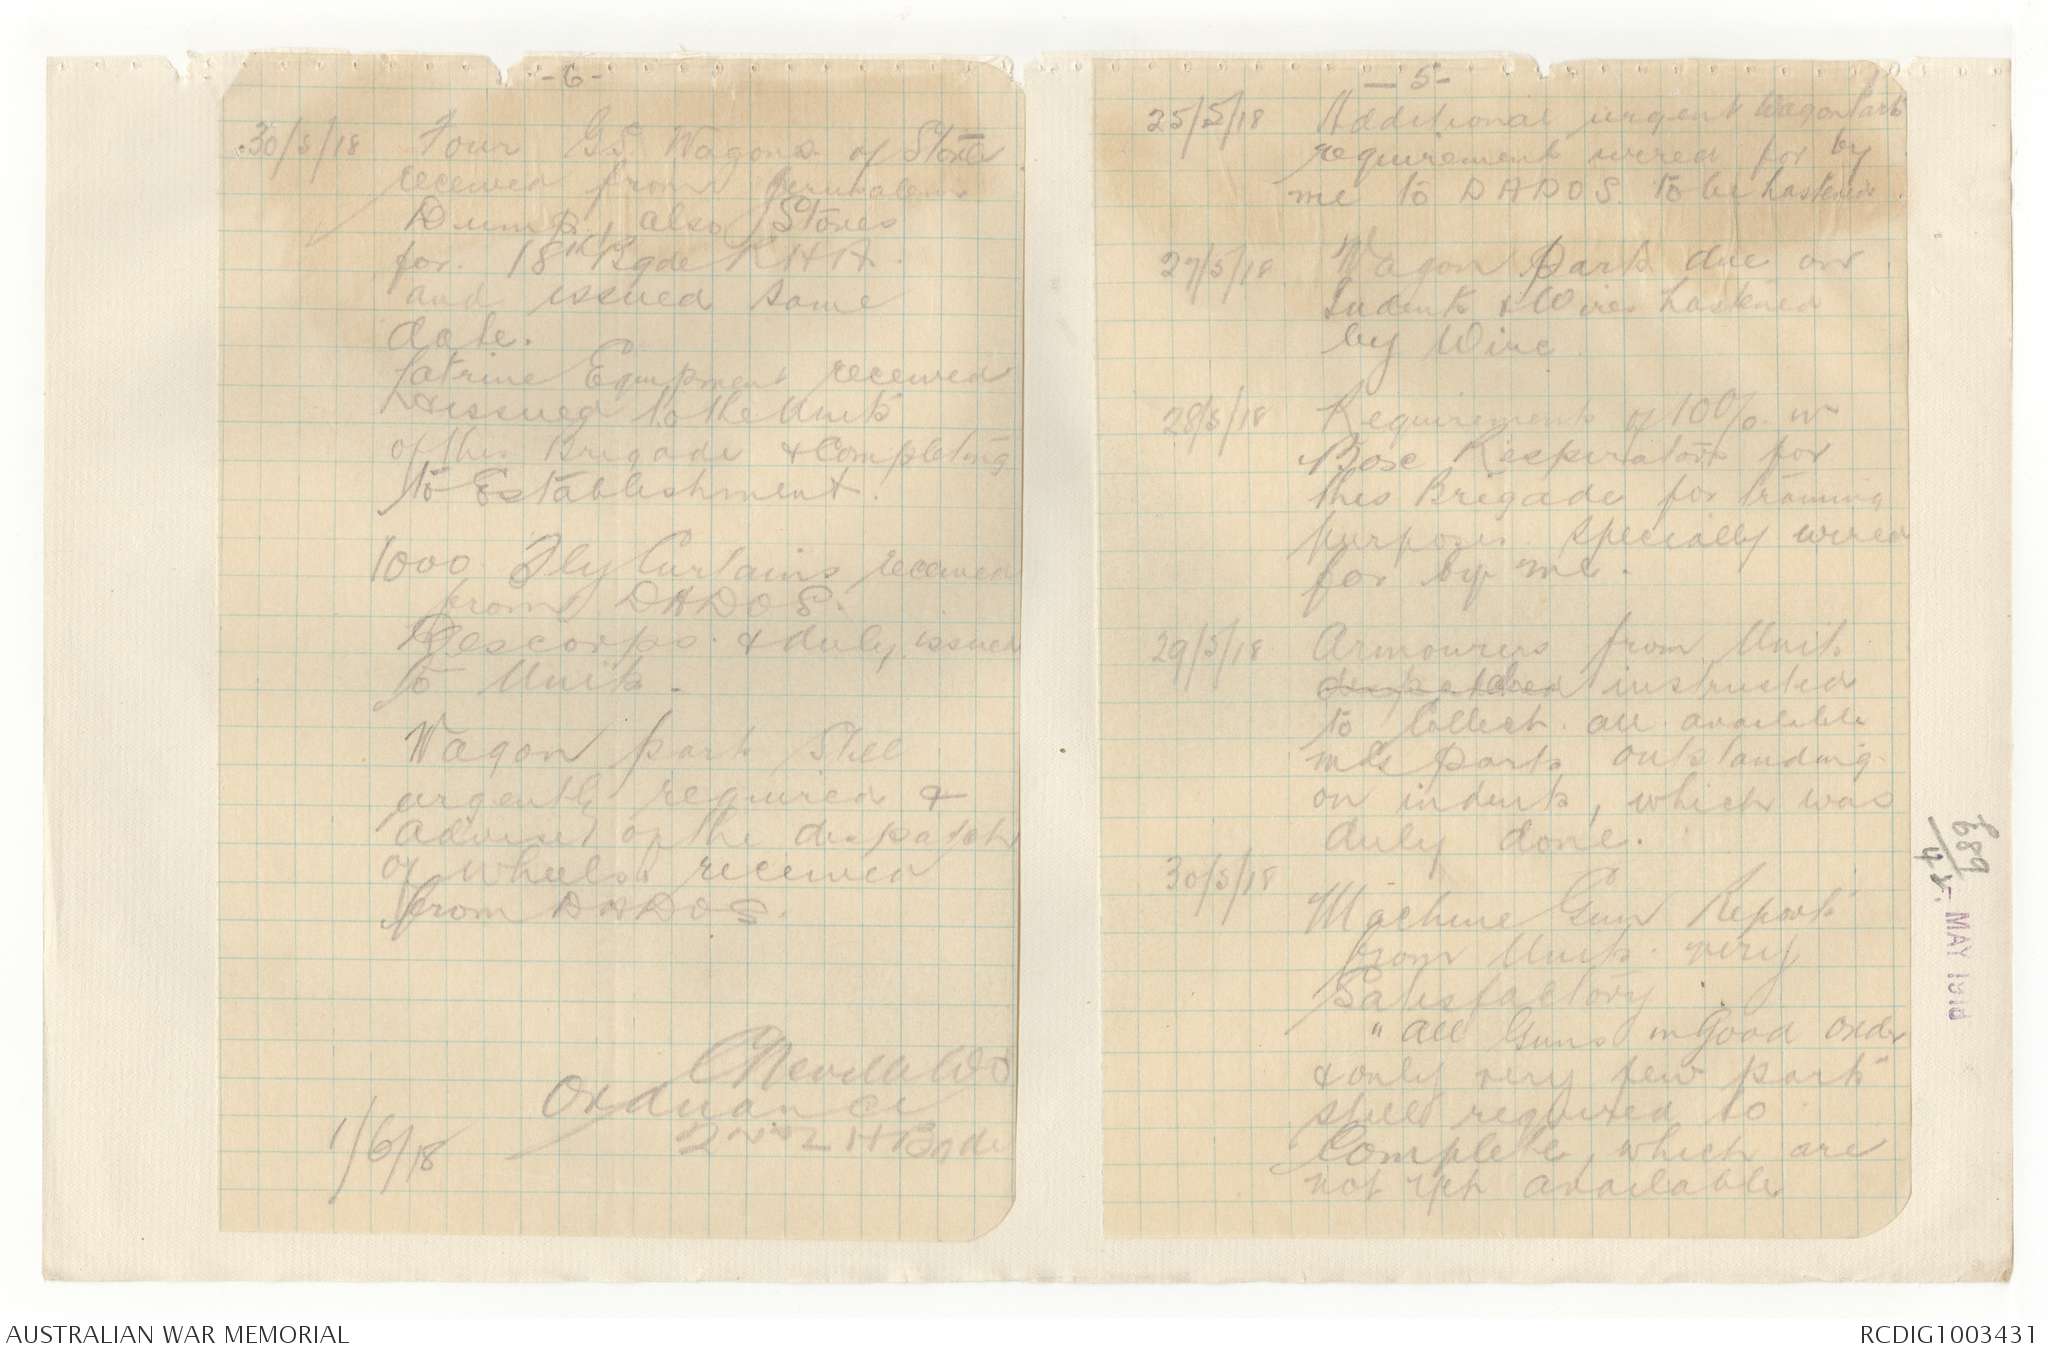 - 6 -
30/5/18 Four G.S. Wagons of Stores
received from Jerusalem
Dump, also Stores
for 18th Bgde RHA.
and issued same
date.
Latrine Equipment received
& issued to the Units
of this Brigade & Completing
to Establishment.
1000 Fly Curtains received
from DADOS.
Descorps. & duly issued
to Units.
Wagon parts still
urgently required &
advised of the despatch
of wheels received
from DADOS.
Ordnance
2nd L H Bgde
1/6/18
- 5 -
25/5/18 Additional urgent Wagon parts
requirements wired for by
me to DADOS. to be hastened.
27/5/18 Wagon parts due on
Indents & Wires hastened
by Wire.
28/5/18 Requirements of 10% in
Box Respirators for
this Brigade for training
purposes specially wired
for by me.
29/5/18 Armourers from Units
despatched instructed
to Collect all available
parts outstanding
on indents, which was
duly done.
30/5/18
Machine Gun Reports
from Units very
Satisfactory
" all Guns in Good Order
& only very few parts
still required to
Complete, which are
not yet available.
£689
MAY 1918
AUSTRALIAN WAR MEMORIAL
RCDIG1003431